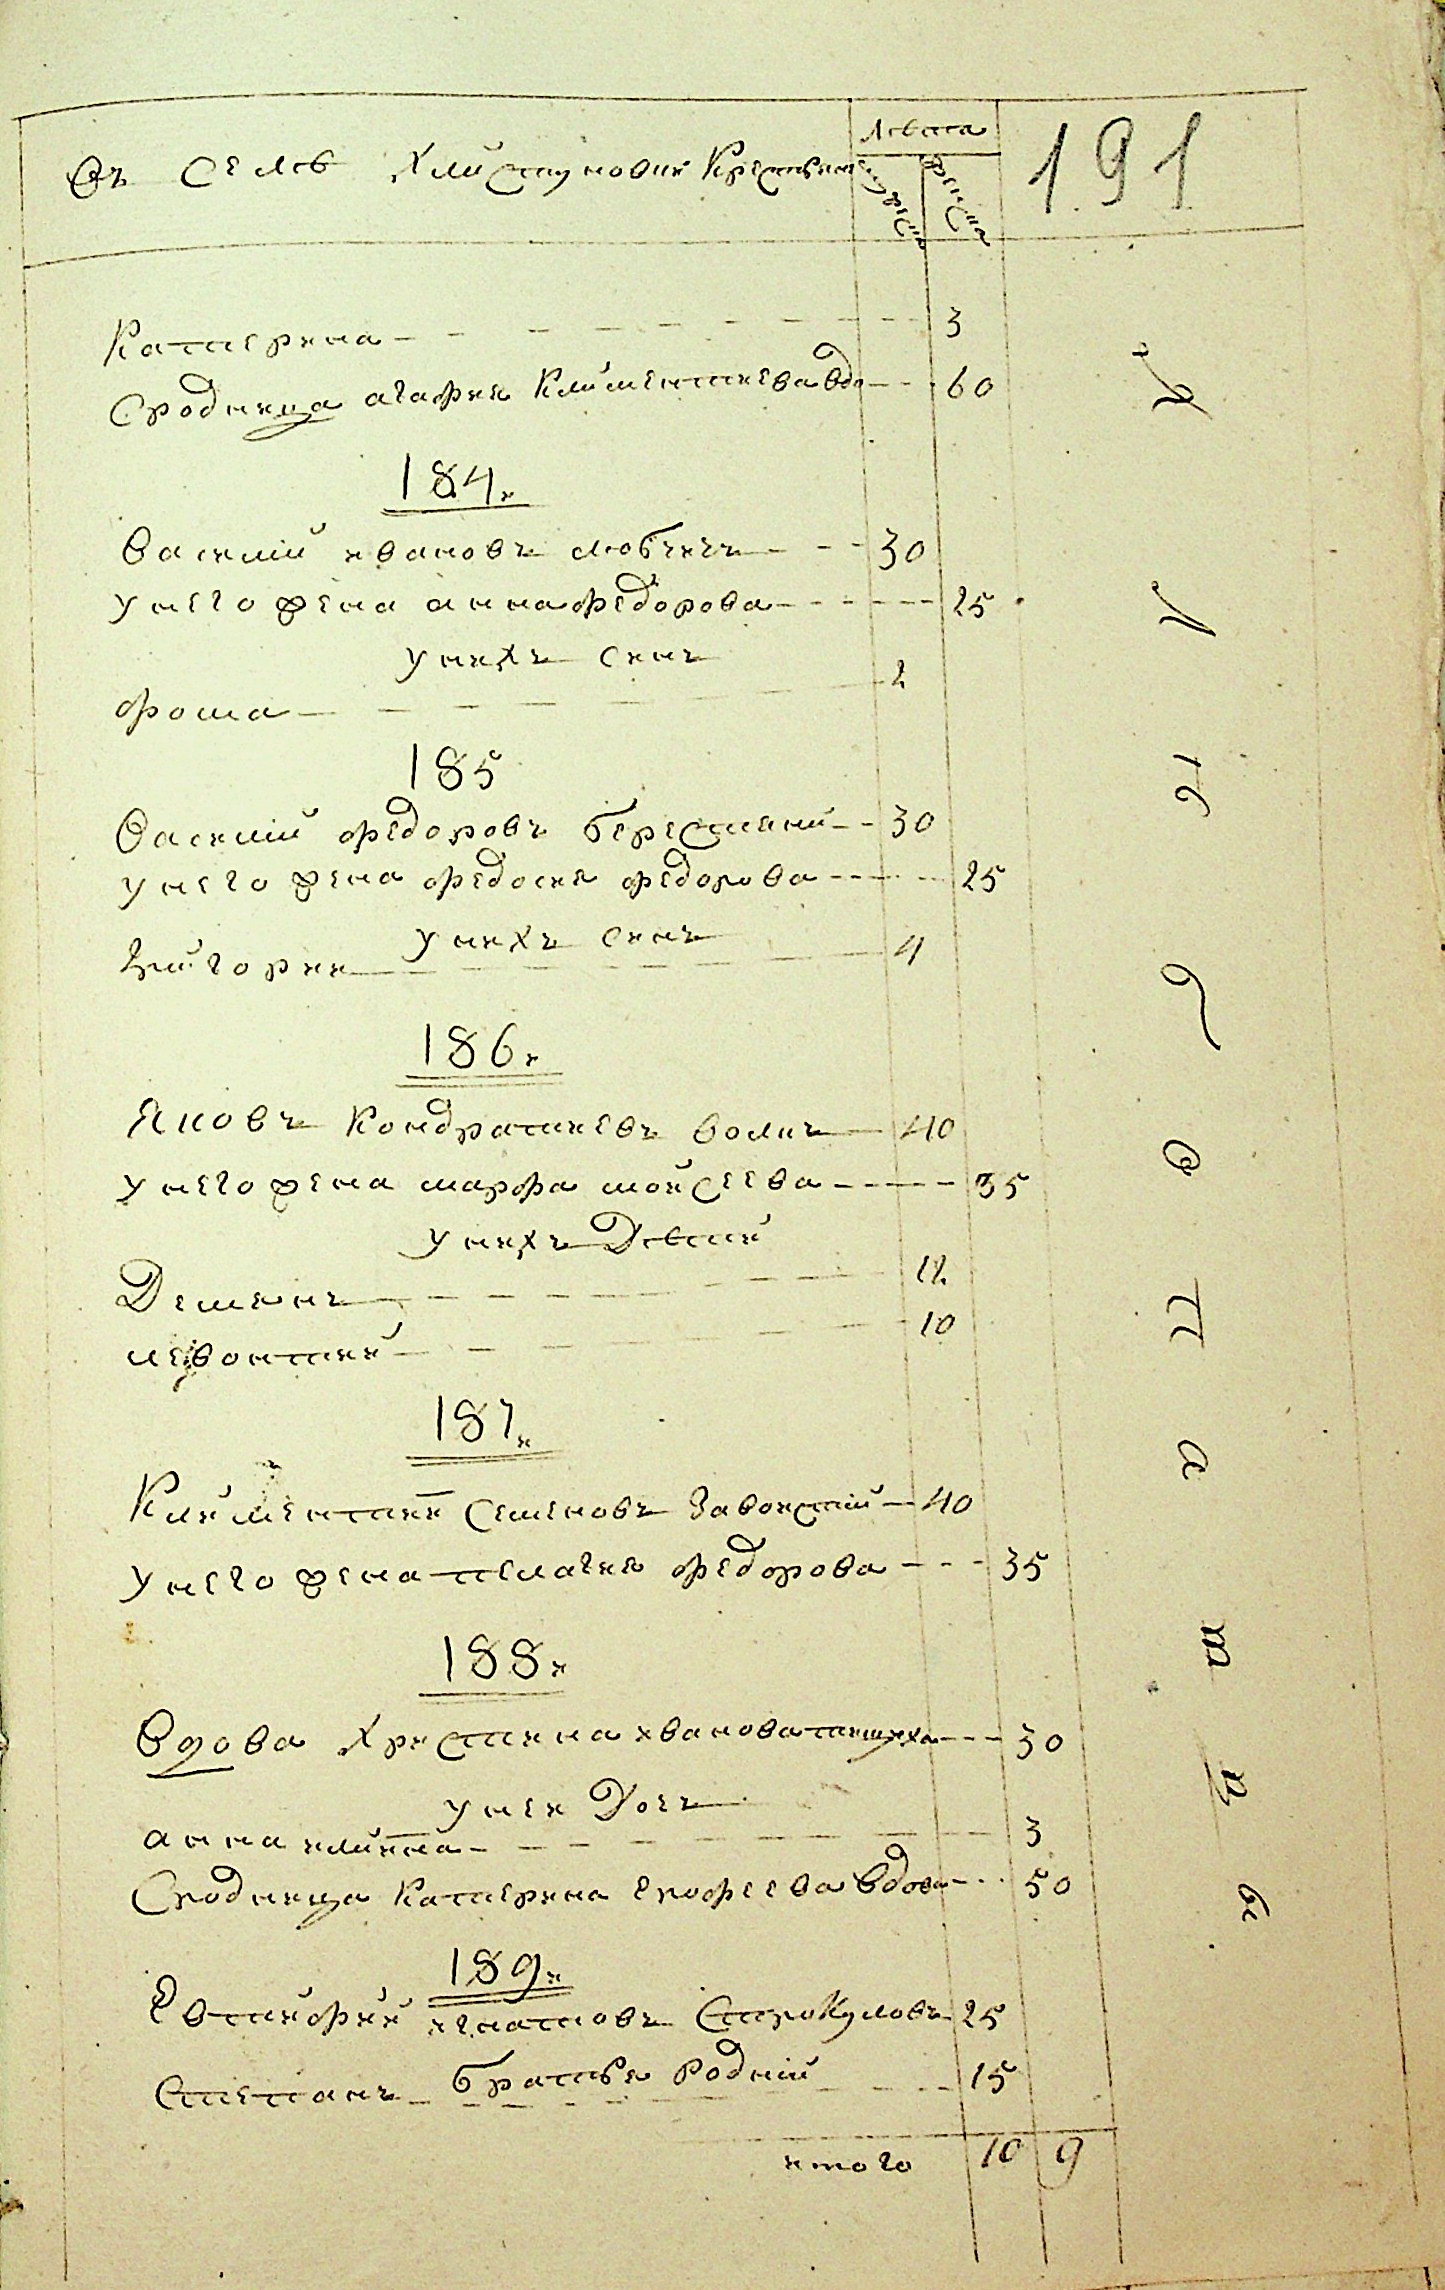 Въ селѣ Хлистуновки Крестьяне
Лѣта
мужеска
женска
191
Катерина 3
Сродница агафия Климентиева вдо 60
184.
Василий ивановъ 30
у него жена анна федорова 25
у нихъ синъ
фома 2
185
Василий федоровъ 30
у него жена федосия федорова 25
у нихъ синъ
Григорий 4
186.
Яковъ Кондратиевъ волкъ 40
у него жена марфа моисеева 35
у нихъ Дѣти
Демянъ 12
левонтий 10
187.
Климентий Семеновъ 40
у него жена пелагия федорова 35
188.
Вдова Христина иванова 30
у неи Дочь
анна 3
Сродница Катерина ерофеева вдова 50
189.
Евтифий игнатовъ 25
братья родний
Степанъ 15
итого 10 9